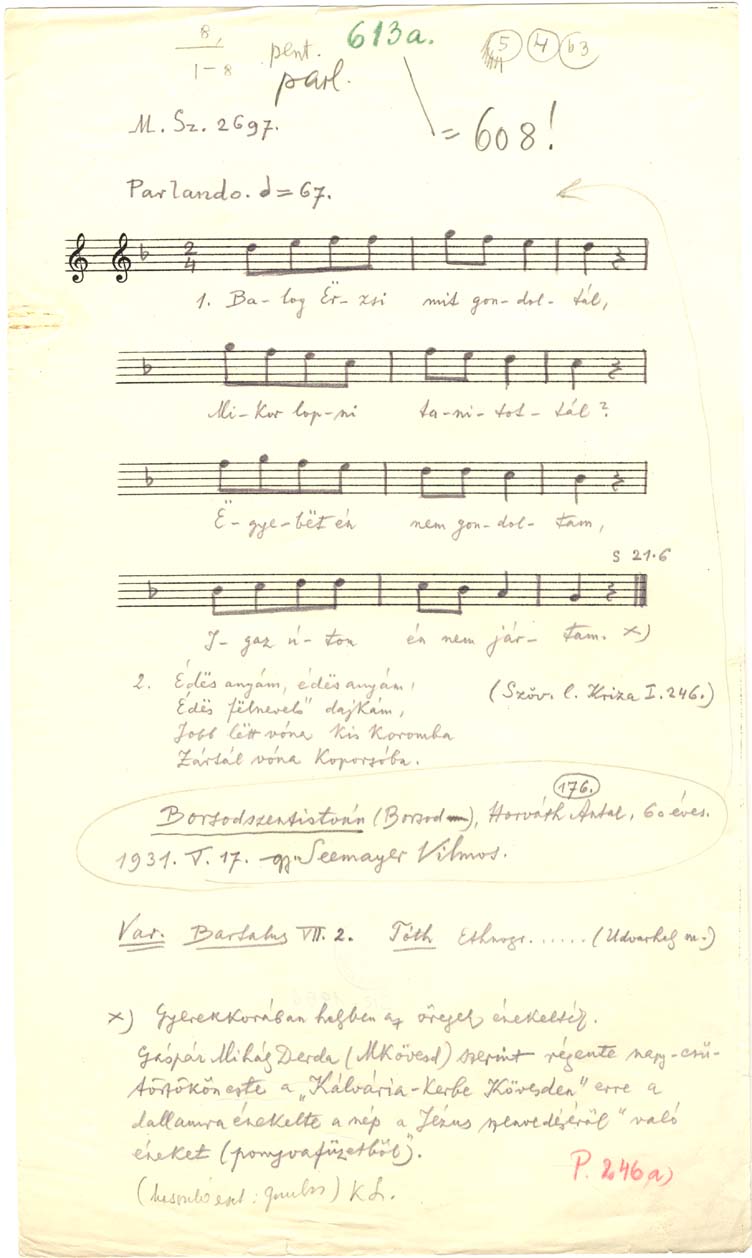 8,
613a.
5 4 63
1-8
pent.
parl.
M. Sz. 2697.
= 608!
Parlando. = 67.
2
4
1. Ba- log Ër- zsi mit gon- dol- tál,
Mi- kor lop- ni ta- ni- tot- tál?
Ë- gye- bët én nem gon- dol- tam,
S 21.6
I- gaz ú- ton én nem jár- tam. x)
2. Édës anyám, édës anyám,
(Szöv. l. Kriza I. 246.)
Édës fëlnevelő dajkám,
Jobb lëtt vóna kis koromba
Zártál vóna koporsóba.
176.
Borsodszentistván (Borsod), Horváth Antal, 60 éves.
1931. V. 17. Seemayer Vilmos.
Var. Bartalus VII. 2. Tóth Ethnogr. ...... (Udvarhely m.)
x) Gyerekkorában helyben az öregek énekelték.
Gáspár Mihály Derda (MKövesd) szerint régente nagy-csü-
törtökön este a „Kálvária-kerbe Kövesden" erre a
dallamra énekelte a nép a Jézus szenvedéséről" való
éneket (ponyvafüzetből").
P. 246a)
K L.